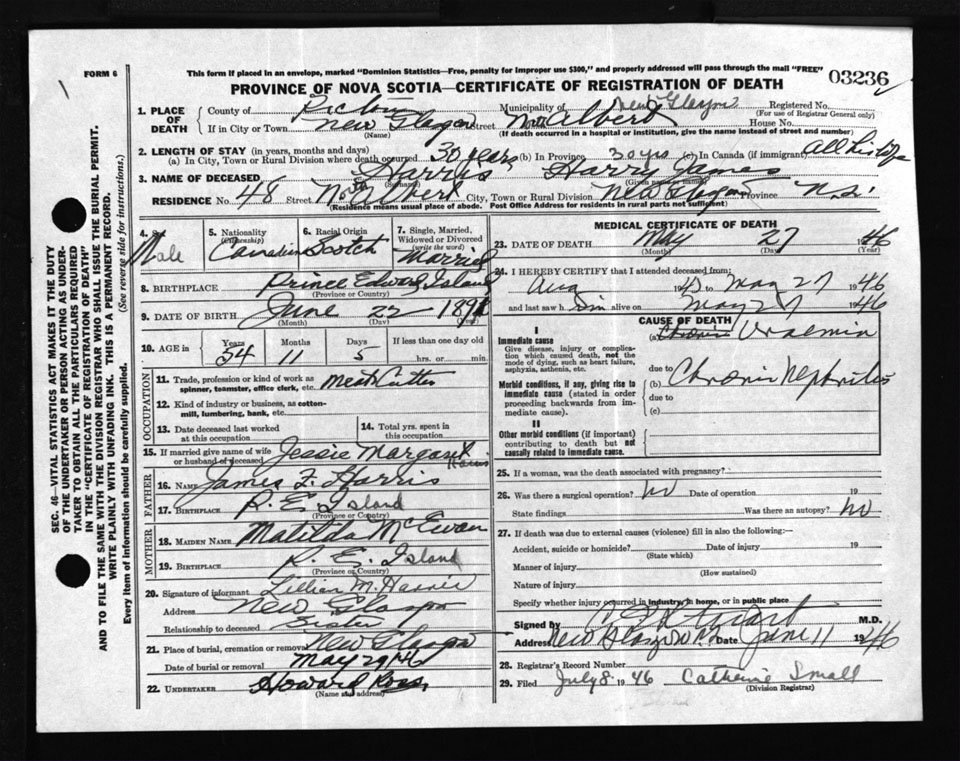 FORM 6
This form if placed in an envelope, marked "Dominion Statistics—Free, penalty for improper use $300," and properly addressed will pass through the mail "FREE"
03236
PROVINCE OF NOVA SCOTIA—CERTIFICATE OF REGISTRATION OF DEATH
1. PLACE OF DEATH County of Pictou Municipality of New Glasgow Registered No.
(For use of Registrar General only)
If in City or Town New Glasgow Street North Albert House No.
(Name) (If death occurred in a hospital or institution, give the name instead of street and number)
2. LENGTH OF STAY (in years, months and days)
(a) In City, Town or Rural Division where death occurred 30 years (b) In Province 30 yrs (c) In Canada (if immigrant) All his life
3. NAME OF DECEASED Harris Harry James
(Surname) (Given name or names)
RESIDENCE No. 48 Street North Albert City, Town or Rural Division New Glasgow Province N.S.
(Residence means usual place of abode. Post Office Address for residents in rural parts not sufficient)
4. Sex Male
5. Nationality (Citizenship) Canadian
6. Racial Origin Scotch
7. Single, Married, Widowed or Divorced (write the word) Married
8. BIRTHPLACE Prince Edward Island
(Province or Country)
9. DATE OF BIRTH June 22 1891
(Month) (Day) (Year)
10. AGE in Years 54 Months 11 Days 5 If less than one day old
hrs. or min.
OCCUPATION
11. Trade, profession or kind of work as spinner, teamster, office clerk, etc. Meat Cutter
12. Kind of industry or business, as cotton-mill, lumbering, bank, etc.
13. Date deceased last worked at this occupation
14. Total yrs. spent in this occupation
15. If married give name of wife or husband of deceased Jessie Margaret Harris
FATHER
16. NAME James F. Harris
17. BIRTHPLACE P. E. Island
(Province or Country)
MOTHER
18. MAIDEN NAME Matilda McEwan
19. BIRTHPLACE P. E. Island
(Province or Country)
20. Signature of informant Lillian M. Harris
Address New Glasgow
Relationship to deceased Sister
21. Place of burial, cremation or removal New Glasgow
Date of burial or removal May 29 1946
22. UNDERTAKER Howard Ross
(Name and address)
MEDICAL CERTIFICATE OF DEATH
23. DATE OF DEATH May 27 1946
(Month) (Day) (Year)
24. I HEREBY CERTIFY that I attended deceased from:
Aug 1945 to May 27 1946
and last saw him alive on May 27 1946
CAUSE OF DEATH
I
Immediate cause
Give disease, injury or complication which caused death, not the mode of dying, such as heart failure, asphyxia, asthenia, etc.
(a) Chronic Uraemia
due to
Morbid conditions, if any, giving rise to immediate cause (stated in order proceeding backwards from immediate cause).
(b) Chronic Nephritis
due to
(c)
II
Other morbid conditions (if important) contributing to death but not causally related to immediate cause.
25. If a woman, was the death associated with pregnancy?
26. Was there a surgical operation? no Date of operation 19
State findings Was there an autopsy? no
27. If death was due to external causes (violence) fill in also the following:—
Accident, suicide or homicide? Date of injury 19
(State which)
Manner of injury
(How sustained)
Nature of injury
Specify whether injury occurred in industry, in home, or in public place
Signed by M.D.
Address New Glasgow Date June 11 1946
28. Registrar's Record Number
29. Filed July 8 1946 Catherine Small
(Division Registrar)
SEC. 46—VITAL STATISTICS ACT MAKES IT THE DUTY
OF THE UNDERTAKER OR PERSON ACTING AS UNDER-
TAKER TO OBTAIN ALL THE PARTICULARS REQUIRED
IN THE "CERTIFICATE OF REGISTRATION OF DEATH"
AND TO FILE THE SAME WITH THE DIVISION REGISTRAR WHO SHALL ISSUE THE BURIAL PERMIT.
WRITE PLAINLY WITH UNFADING INK. THIS IS A PERMANENT RECORD.
Every item of information should be carefully supplied. (See reverse side for instructions.)